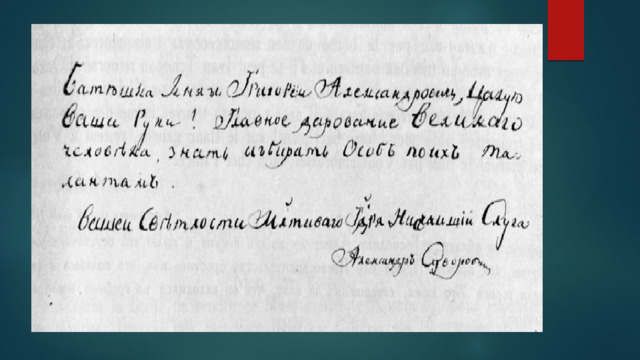 Батюшка Князь Григорей Александровичь, Цалую
Ваши Руки! Главное дарование Великаго
человѣка, знать избирать Особъ поихъ та-
лантамъ.
Вашей Свѣтлости Млтиваго Гдря Нижайшій Слуга
Александръ Суворовъ